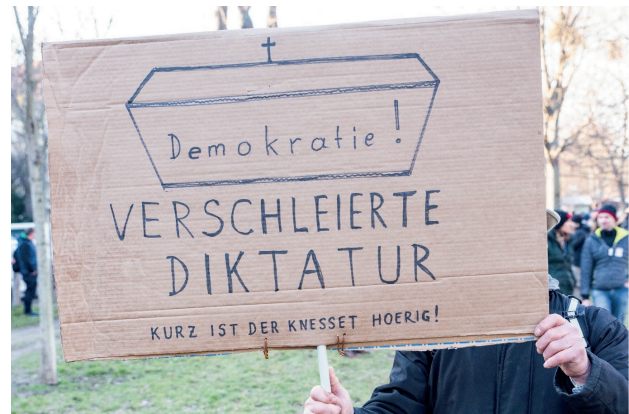 Demokratie!
VERSCHLEIERTE
DIKTATUR
KURZ IST DER KNESSET HOERIG!